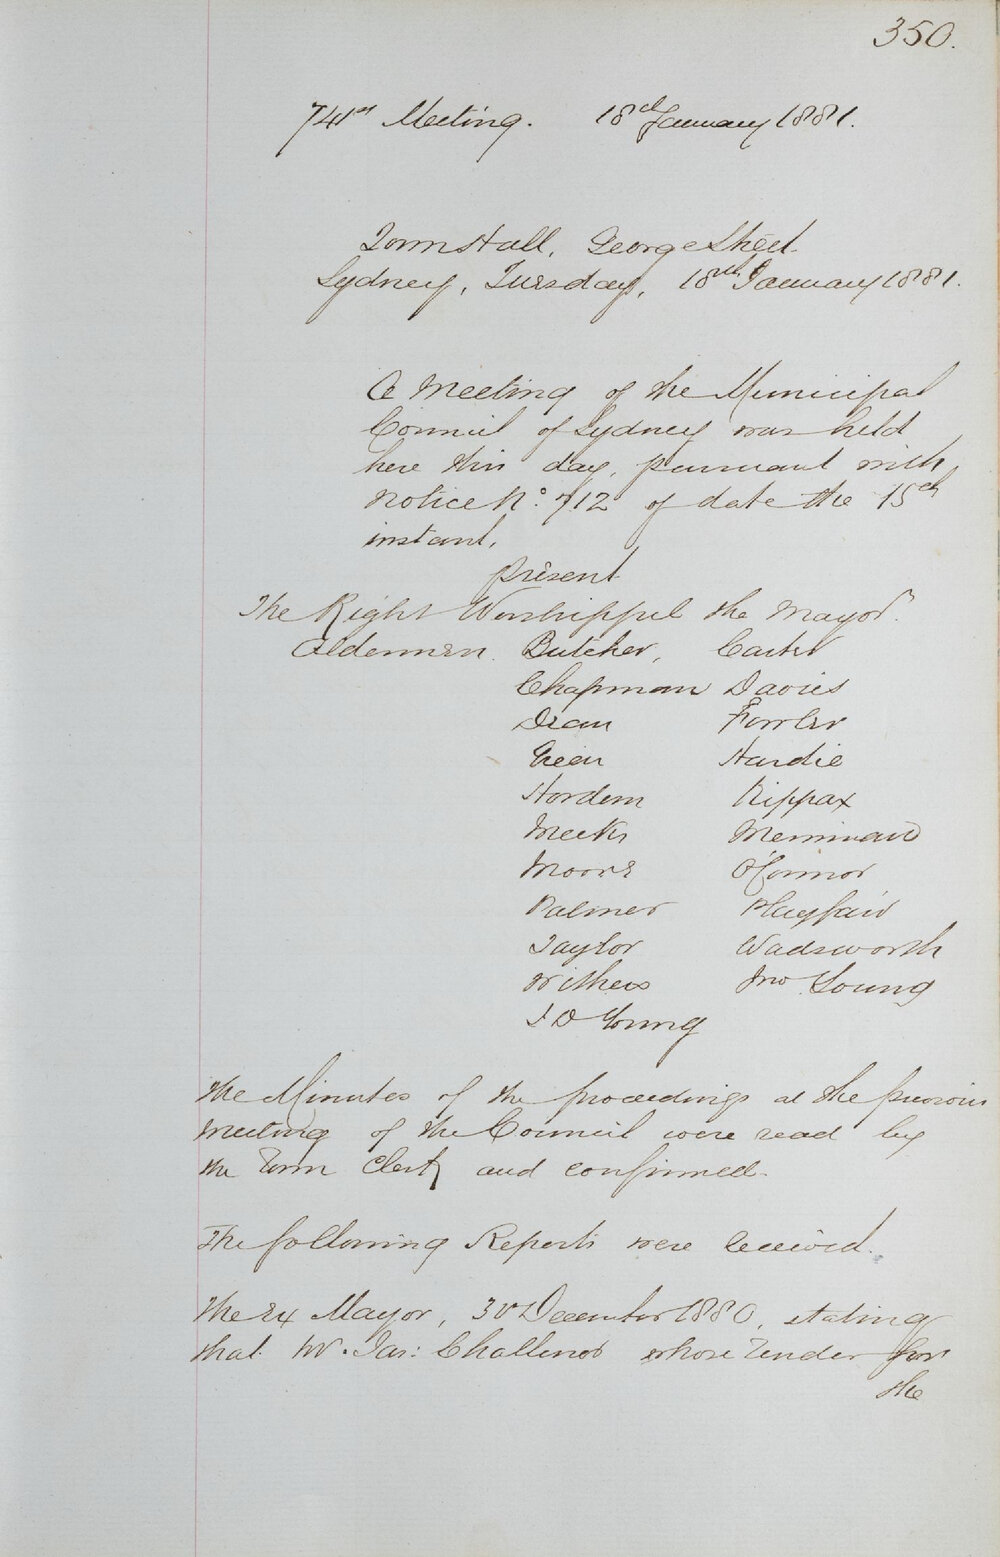 350.
741st Meeting. 18th January 1881.
Town Hall, George Street.
Sydney, Tuesday, 18th January 1881.
A Meeting of the Municipal
Council of Sydney was held
here this day, pursuant with
notice No. 712 of date the 15th
instant.
present
The Right Worshipful the Mayor.
Aldermen Butcher, Carter
Chapman Davies
Dean Fowler
Green Hardie
Hordern Kippax
Meeks Merriman
Moore O'Connor
Palmer Playfair
Taylor Wadsworth
Withers Jno Young
J D Young
The Minutes of the proceedings at the previous
meeting of the Council were read by
the Town Clerk and confirmed.
The following Reports were received.
The Ex Mayor, December 1880, stating
that Jas: whose Tender for
the